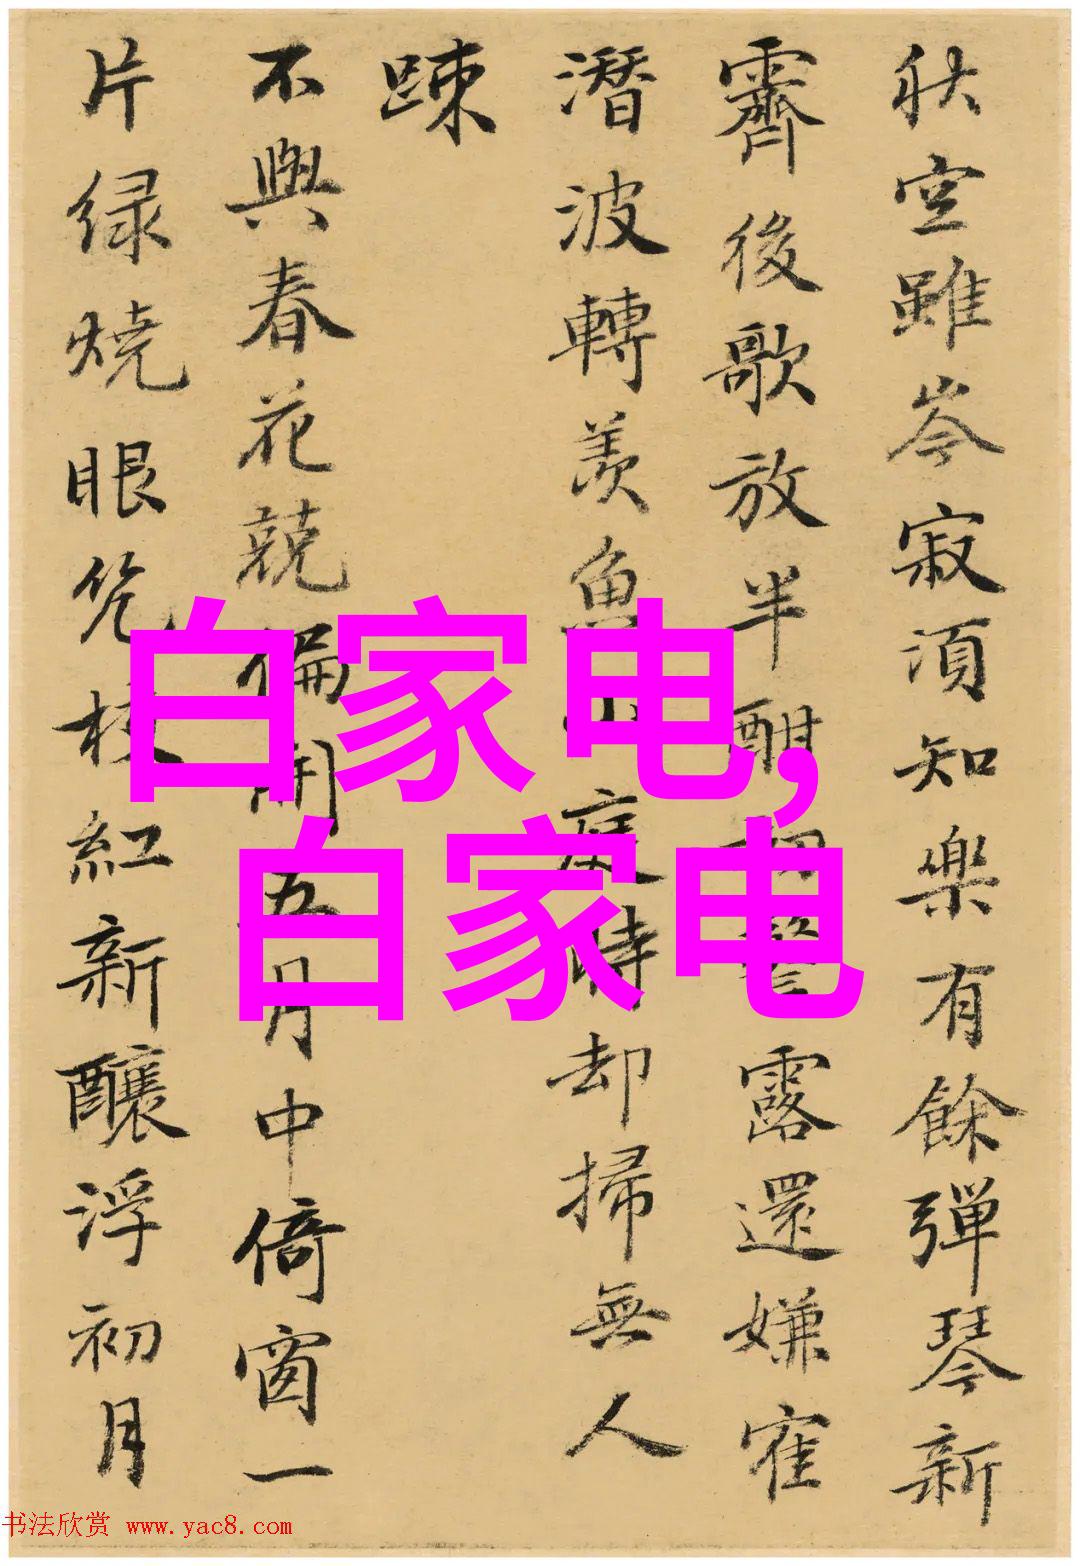 秋空雖岑寂須知樂有餘彈琴新
霽後歌放半酣初警露還嫌寉
潛波轉羨魚山庭時却掃無人
踈
不與春花競偏開五月中倚窗一
片緑燒眼幾枝紅新釀浮初月
白家电,
白家电
书法欣赏 www.yac8.com